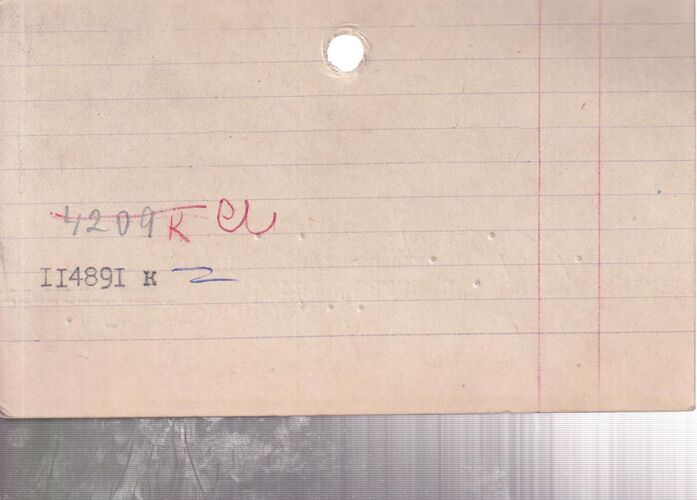 4209 к
II489I к